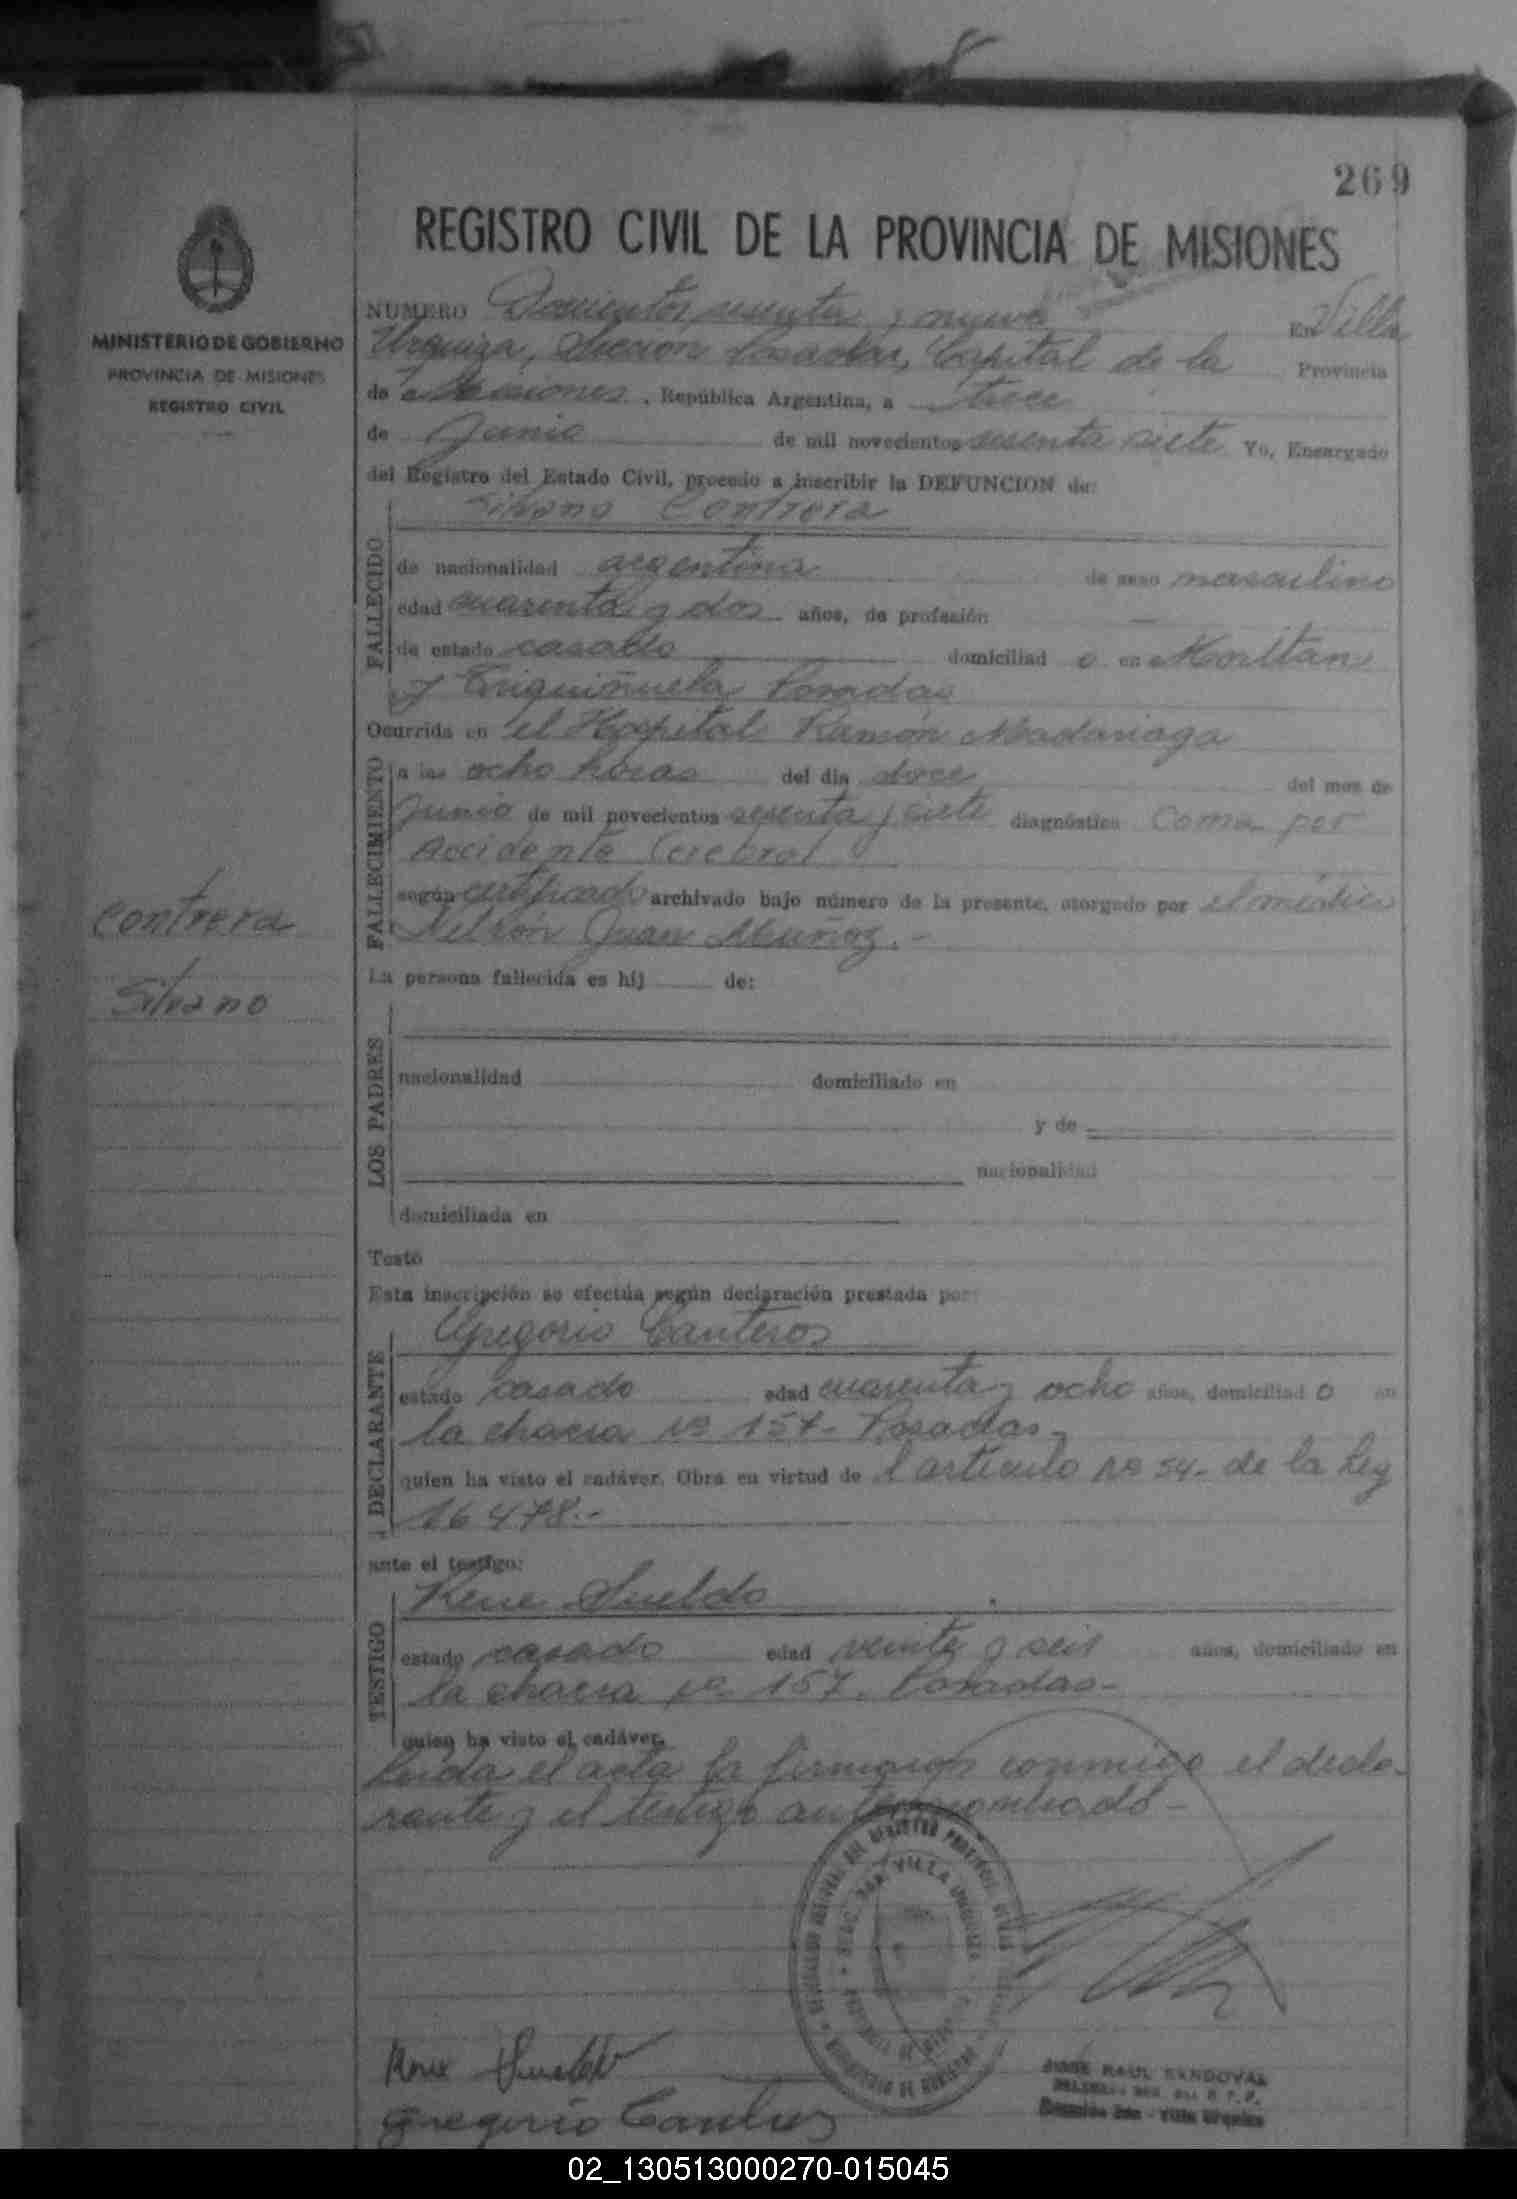 269
REGISTRO CIVIL DE LA PROVINCIA DE MISIONES
MINISTERIO DE GOBIERNO
PROVINCIA DE MISIONES
REGISTRO CIVIL
NUMERO Doscientos sesenta y nueve En Villa
Urquiza, Sección Posadas, Capital de la Provincia
de Misiones, República Argentina, a trece
de Junio de mil novecientos sesenta siete Yo, Encargado
del Registro del Estado Civil, procedo a inscribir la DEFUNCION de:
Silvano Contrera
FALLECIDO
de nacionalidad argentina de sexo masculino
edad cuarenta y dos años, de profesión —
de estado casado domiciliad o en
y Posadas
Ocurrida en el Hospital Ramón Madariaga
FALLECIMIENTO
a las ocho horas del día doce del mes de
Junio de mil novecientos sesenta y siete diagnóstico Coma por
Accidente Cerebral
según certificado archivado bajo número de la presente, otorgado por el médico
Nelson Juan Muñoz.-
Contrera
Silvano
La persona fallecida es hij de:
LOS PADRES
nacionalidad domiciliado en
y de
nacionalidad
domiciliada en
Testó
Esta inscripción se efectúa según declaración prestada por:
Gregorio Canteros
DECLARANTE
estado casado edad cuarenta y ocho años, domiciliad o en
la chacra nº 157- Posadas-
quien ha visto el cadáver. Obra en virtud de l artículo nº 54- de la Ley
16478.-
ante el testigo:
Rene Sueldo
TESTIGO
estado casado edad veinte y seis años, domiciliado en
la chacra nº 157. Posadas-
quien ha visto el cadáver.
Leida el acta la firmaron conmigo el decla-
rante y el testigo antes nombrado-
VILLA URQUIZA
MINISTERIO DE GOBIERNO
Rene Sueldo
Gregorio Canteros
JORGE RAUL SANDOVAL
Villa Urquiza
02_130513000270-015045